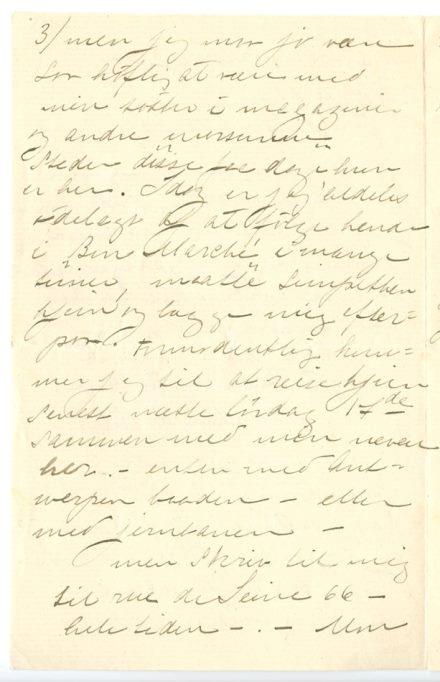 3/ men jeg maa jo være
saa høflig at være med
min søster i magaziner
og andre
Steder disse faa dage hun
er her. Idag er jeg aldeles
ødelagt af at følge hende
i "Bon Marché" i mange
timer, maatte simpelthen
hjem og lægge mig efter-
paa. Formodentlig kom-
mer jeg til at reise hjem
senest næste lørdag 17de
sammen med min nevø
her. - enten med Ant-
werpen baaden - eller
med jernbanen -
men skriv til mig
til rue de Seine 66 -
hele tiden - . - Mon